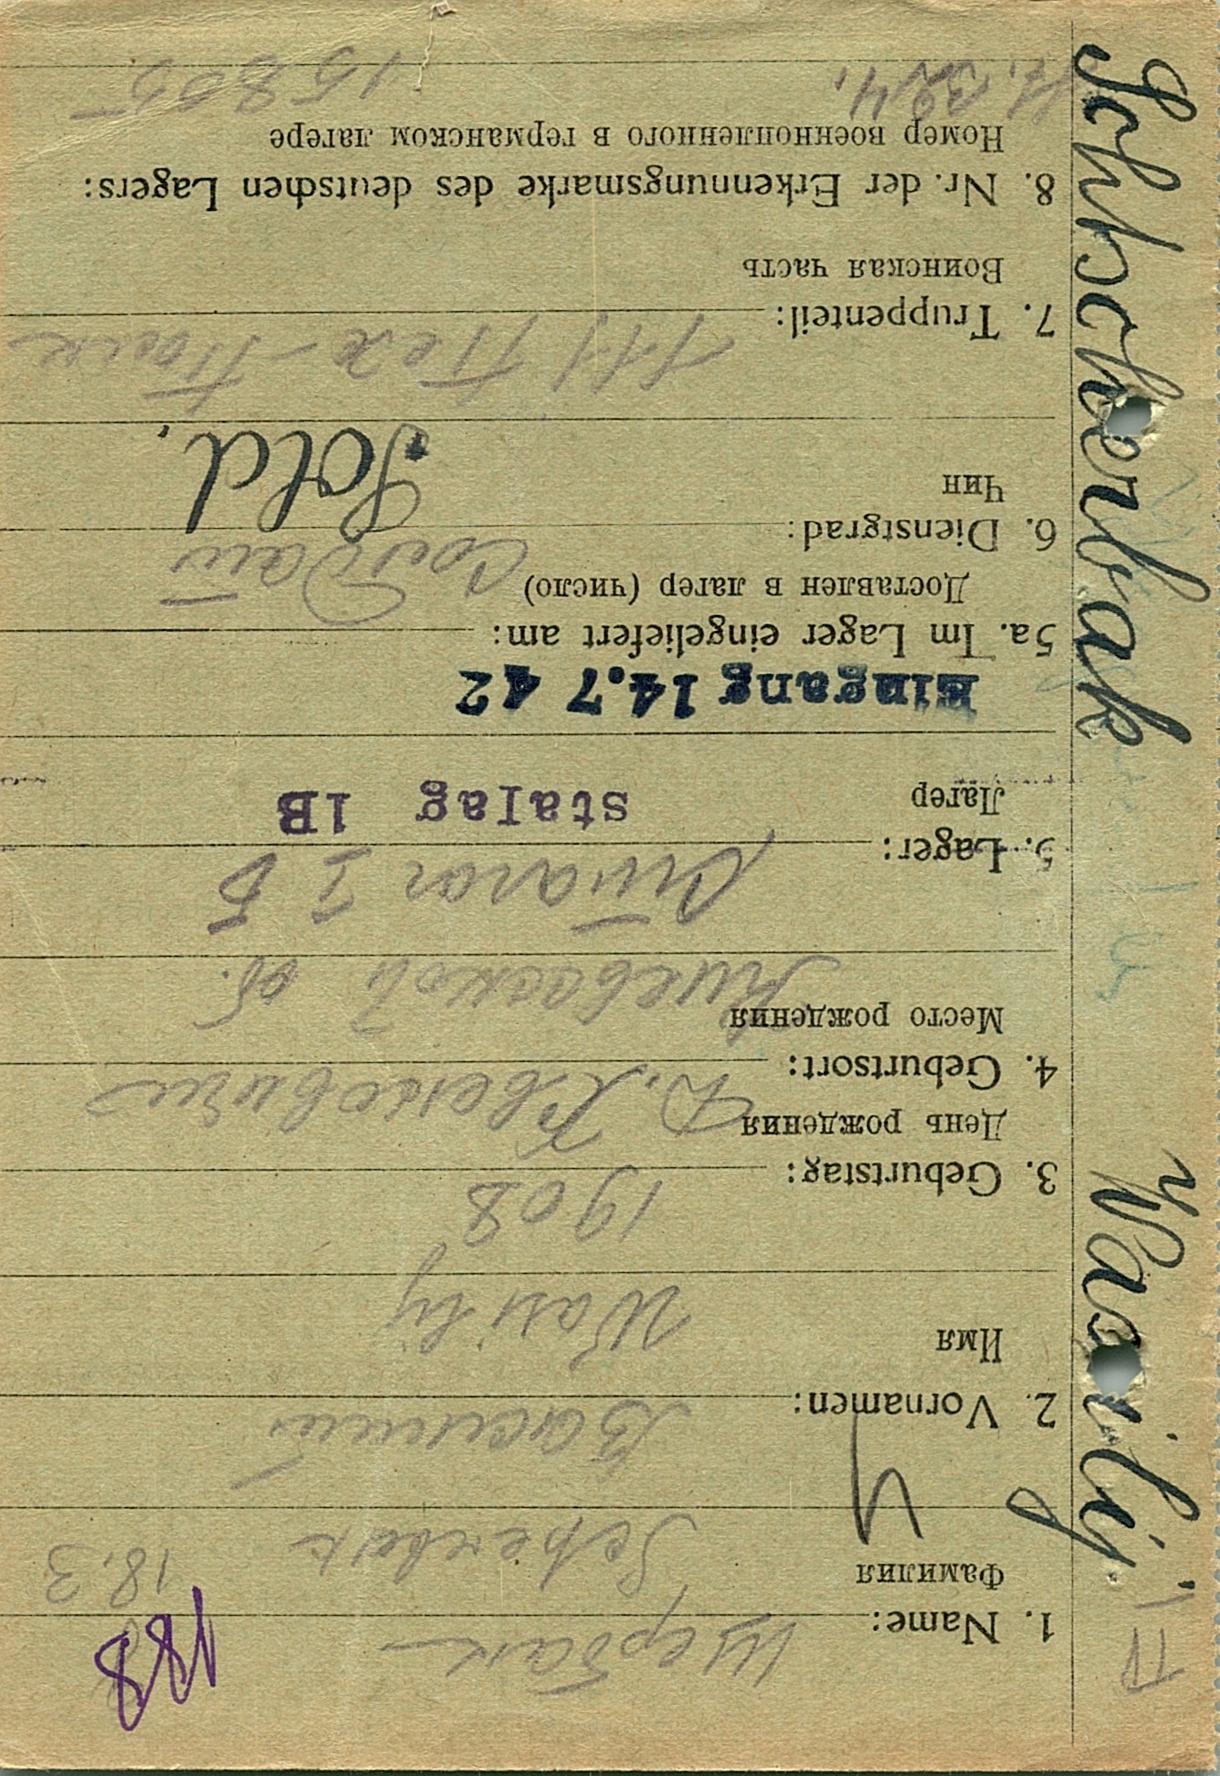 188
1. Name: Щербак
Фамилия
Scherbak 18.3
Ч
2. Vornamen: Василий
Имя
Wasilij
3. Geburtstag: 1908
День рождения
4. Geburtsort:
Место рождения
Киевской об.
5. Lager: Сталаг I Б
Лагер
stalag 1B
Eingang 14.7 42
5a. Im Lager eingeliefert am:
Доставлен в лагер (число)
6. Dienstgrad: Солдат
Чин
Sold.
7. Truppenteil: 111 Пех Полк
Воинская часть
8. Nr. der Erkennungsmarke des deutschen Lagers:
Номер военнопленного в германском лагере
St. 324. 15805
Schtscherbak Wasilij